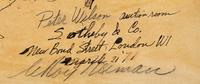 of
Peter Wilson auction room
Sotheby & Co.
New Bond Street, London W1
August 21
LeRoy Neiman